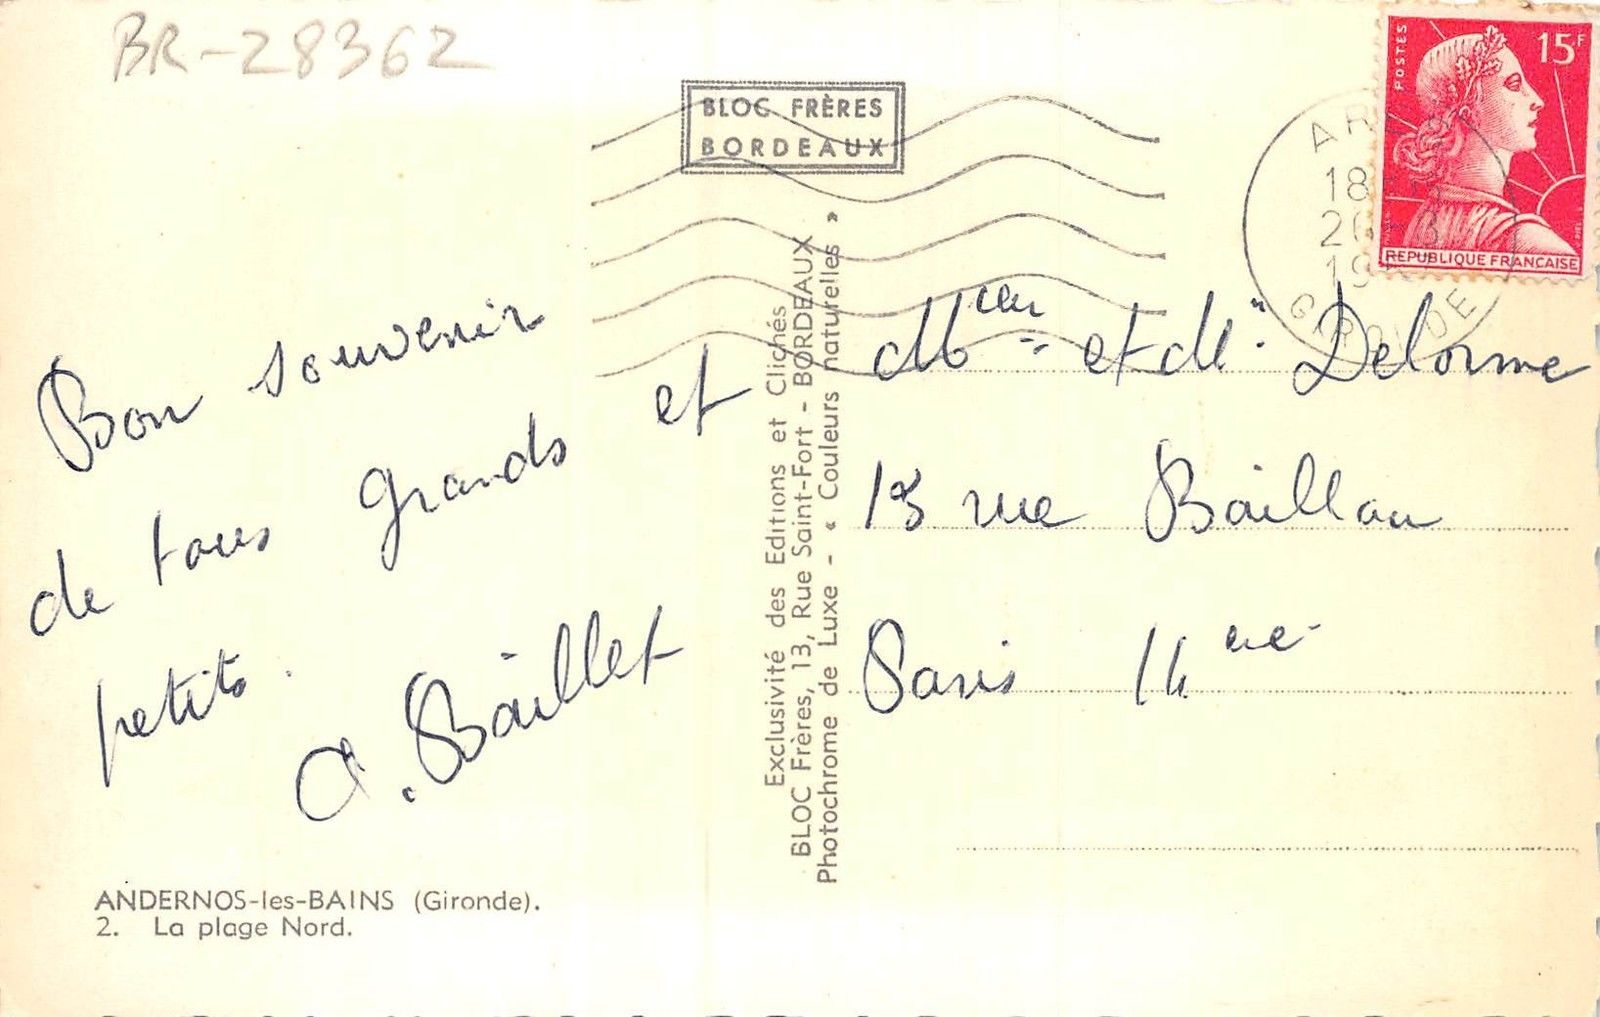 BR-28362
BLOC FRÈRES
BORDEAUX
POSTES
15F
REPUBLIQUE FRANCAISE
18
GIRONDE
Bon souvenir
de tous grands et
petits.
A. Baillet
Exclusivité des Editions et Clichés
BLOC Frères, 13, Rue Saint-Fort - BORDEAUX
Photochrome de Luxe - « Couleurs naturelles »
Mr et Me Delorme
13 rue Baillou
Paris 14eme
ANDERNOS-les-BAINS (Gironde).
2. La plage Nord.